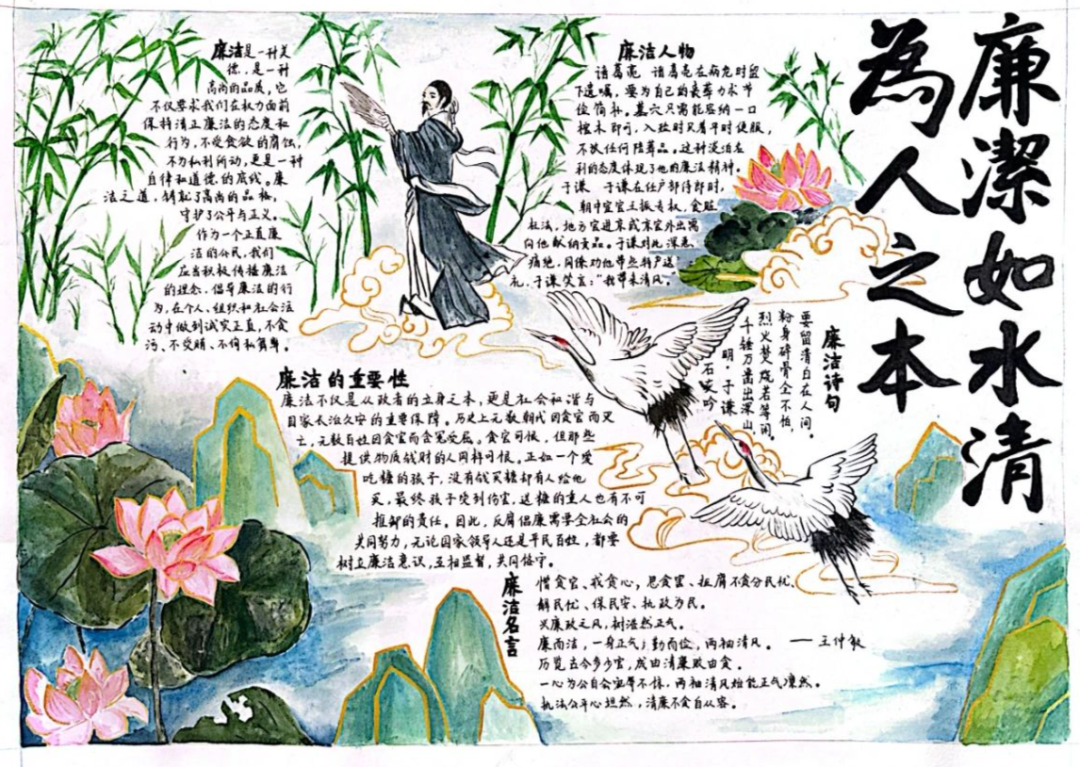 廉潔如水清
為人之本
廉洁是一种美
德，是一种
高尚的品质，它
不仅要求我们在权力面前
保持清正廉洁的态度和
行为，不受贪欲的腐蚀，
不为私利所动，更是一种
自律和道德的底线。廉
洁之道，铸就了高尚的品格，
守护了公平与正义。
作为一个正直廉
洁的公民，我们
应当积极传播廉洁
的理念，倡导廉洁的行
为，在个人、组织和社会活
动中做到诚实正直，不贪
污、不受贿、不徇私舞弊。
廉洁人物
诸葛亮 诸葛亮在病危时留
下遗嘱，要为自己的丧葬力求节
俭简朴。墓穴只需能容纳一口
棺木即可，入殓时只着平时便服，
不放任何陪葬品。这种淡泊名
利的态度体现了他的廉洁精神。
于谦 于谦在任户部侍郎时，
朝中宦官王振专权，贪赃
枉法，地方官进京或京官外出需
向他献纳贡品。于谦对此深恶
痛绝，同僚劝他带些特产送
礼，于谦笑言：“我带来清风”。
廉洁诗句
要留清白在人间。
粉身碎骨全不怕，
烈火焚烧若等闲。
千锤万凿出深山，
明·于谦
石灰吟
廉洁的重要性
廉洁不仅是从政者的立身之本，更是社会和谐与
国家长治久安的重要保障。历史上无数朝代因贪官而灭
亡，无数百姓因贪官而含冤受屈。贪官可恨，但那些
提供物质钱财的人同样可恨。正如一个爱
吃糖的孩子，没有钱买糖却有人给他
买，最终孩子受到伤害，送糖的主人也有不可
推卸的责任。因此，反腐倡廉需要全社会的
共同努力，无论国家领导人还是平民百姓，都要
树立廉洁意识，互相监督，共同恪守。
廉洁名言
憎贪官、戒贪心，思贪害、拒腐不贪分民忧、
解民忧、保民安、执政为民。
兴廉政之风，树浩然正气。
廉而洁，一身正气；勤而俭，两袖清风。 ——王仲敏
历览古今多少官，成由清廉败由贪。
一心为公自会宠辱不惊，两袖清风始能正气凛然。
执法公平心坦然，清廉不贪自从容。